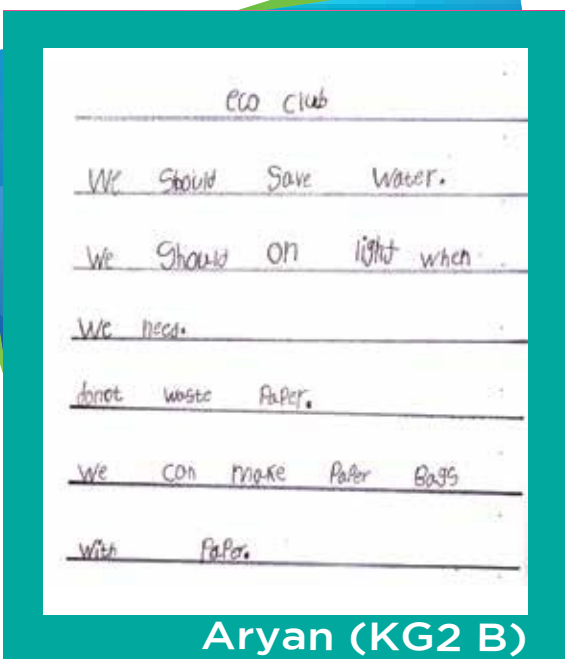 eco club
We Should Save Water.
We Should on light when
We need.
donot waste Paper.
We can make Paper Bags
With Paper.
Aryan (KG2 B)